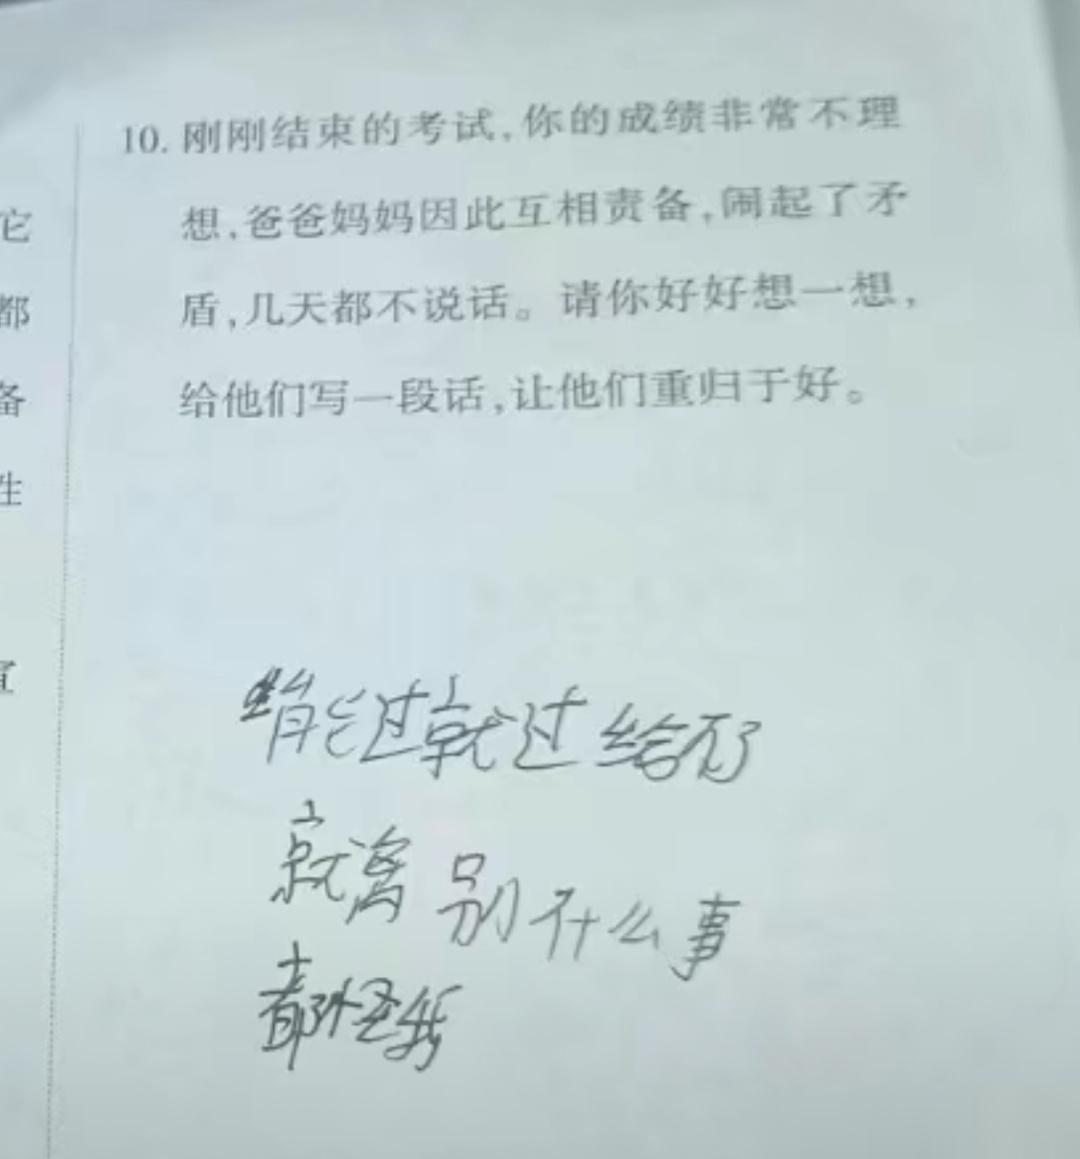 它
都
备
性
宜
10. 刚刚结束的考试,你的成绩非常不理
想,爸爸妈妈因此互相责备,闹起了矛
盾,几天都不说话。请你好好想一想,
给他们写一段话,让他们重归于好。
能过就过 给不了
就离 别什么事
都怪我